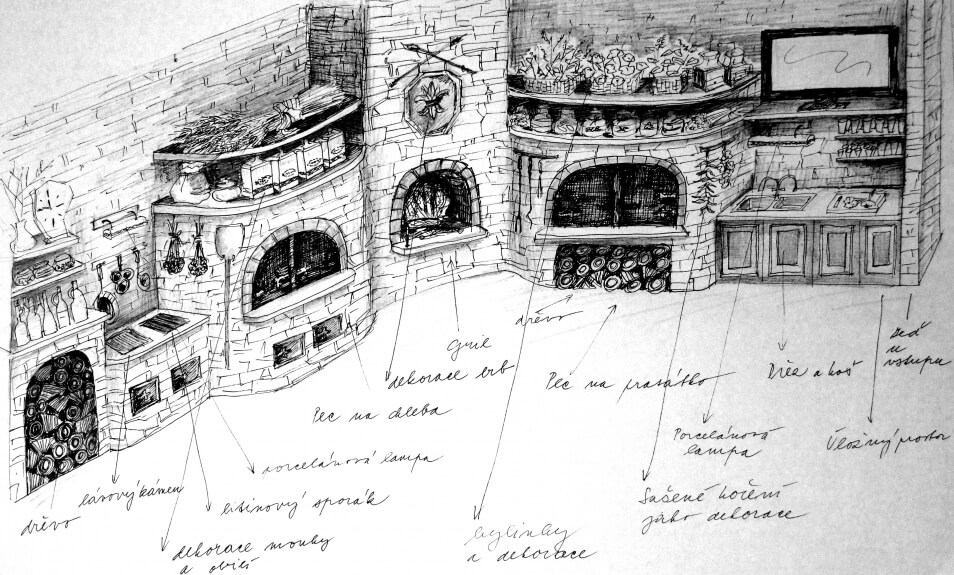 dřevo
lávový kámen
dekorace mouky
a obilí
litinový sporák
porcelánová lampa
Pec na chleba
dekorace erb
Gril
dřevo
bylinky
a dekorace
Pec na prasátko
Sušené koření
jako dekorace
Porcelánová
lampa
Dřez a koš
Úložný prostor
zeď
u
vstupu